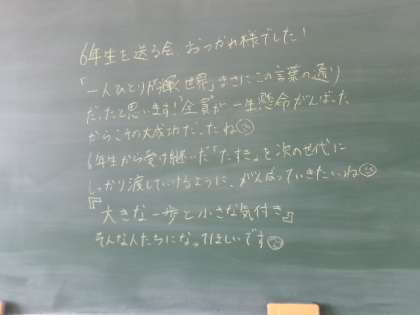 6年生を送る会 おつかれ様でした!
「一人ひとりが輝く世界」まさにこの言葉の通り
だったと思います!全員が一生懸命がんばった
からこその大成功だったね
6年生から受け継いだ「たすき」を次の世代に
しっかり渡していけるように、がんばっていきたいね
『大きな一歩と小さな気付き』
そんな人たちになってほしいです